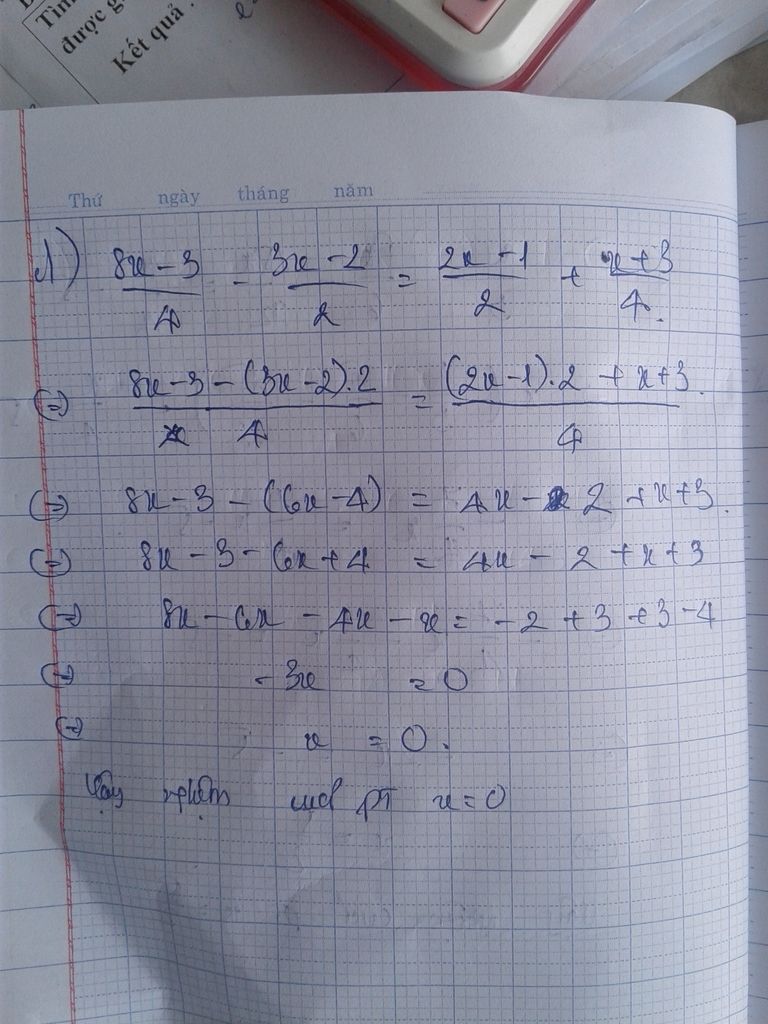 Tìm
được g
Kết quả.
Thứ ngày tháng năm
1) \frac{8x-3}{4} - \frac{3x-2}{2} = \frac{2x-1}{2} + \frac{x+3}{4}.
(=) \frac{8x-3-(3x-2).2}{4} = \frac{(2x-1).2+x+3}{4}.
(=) 8x-3-(6x-4) = 4x-2+x+3.
(=) 8x-3-6x+4 = 4x-2+x+3
(=) 8x-6x-4x-x = -2+3+3-4
(=) -3x = 0
(=) x = 0.
Vậy nghiệm của pt x=0